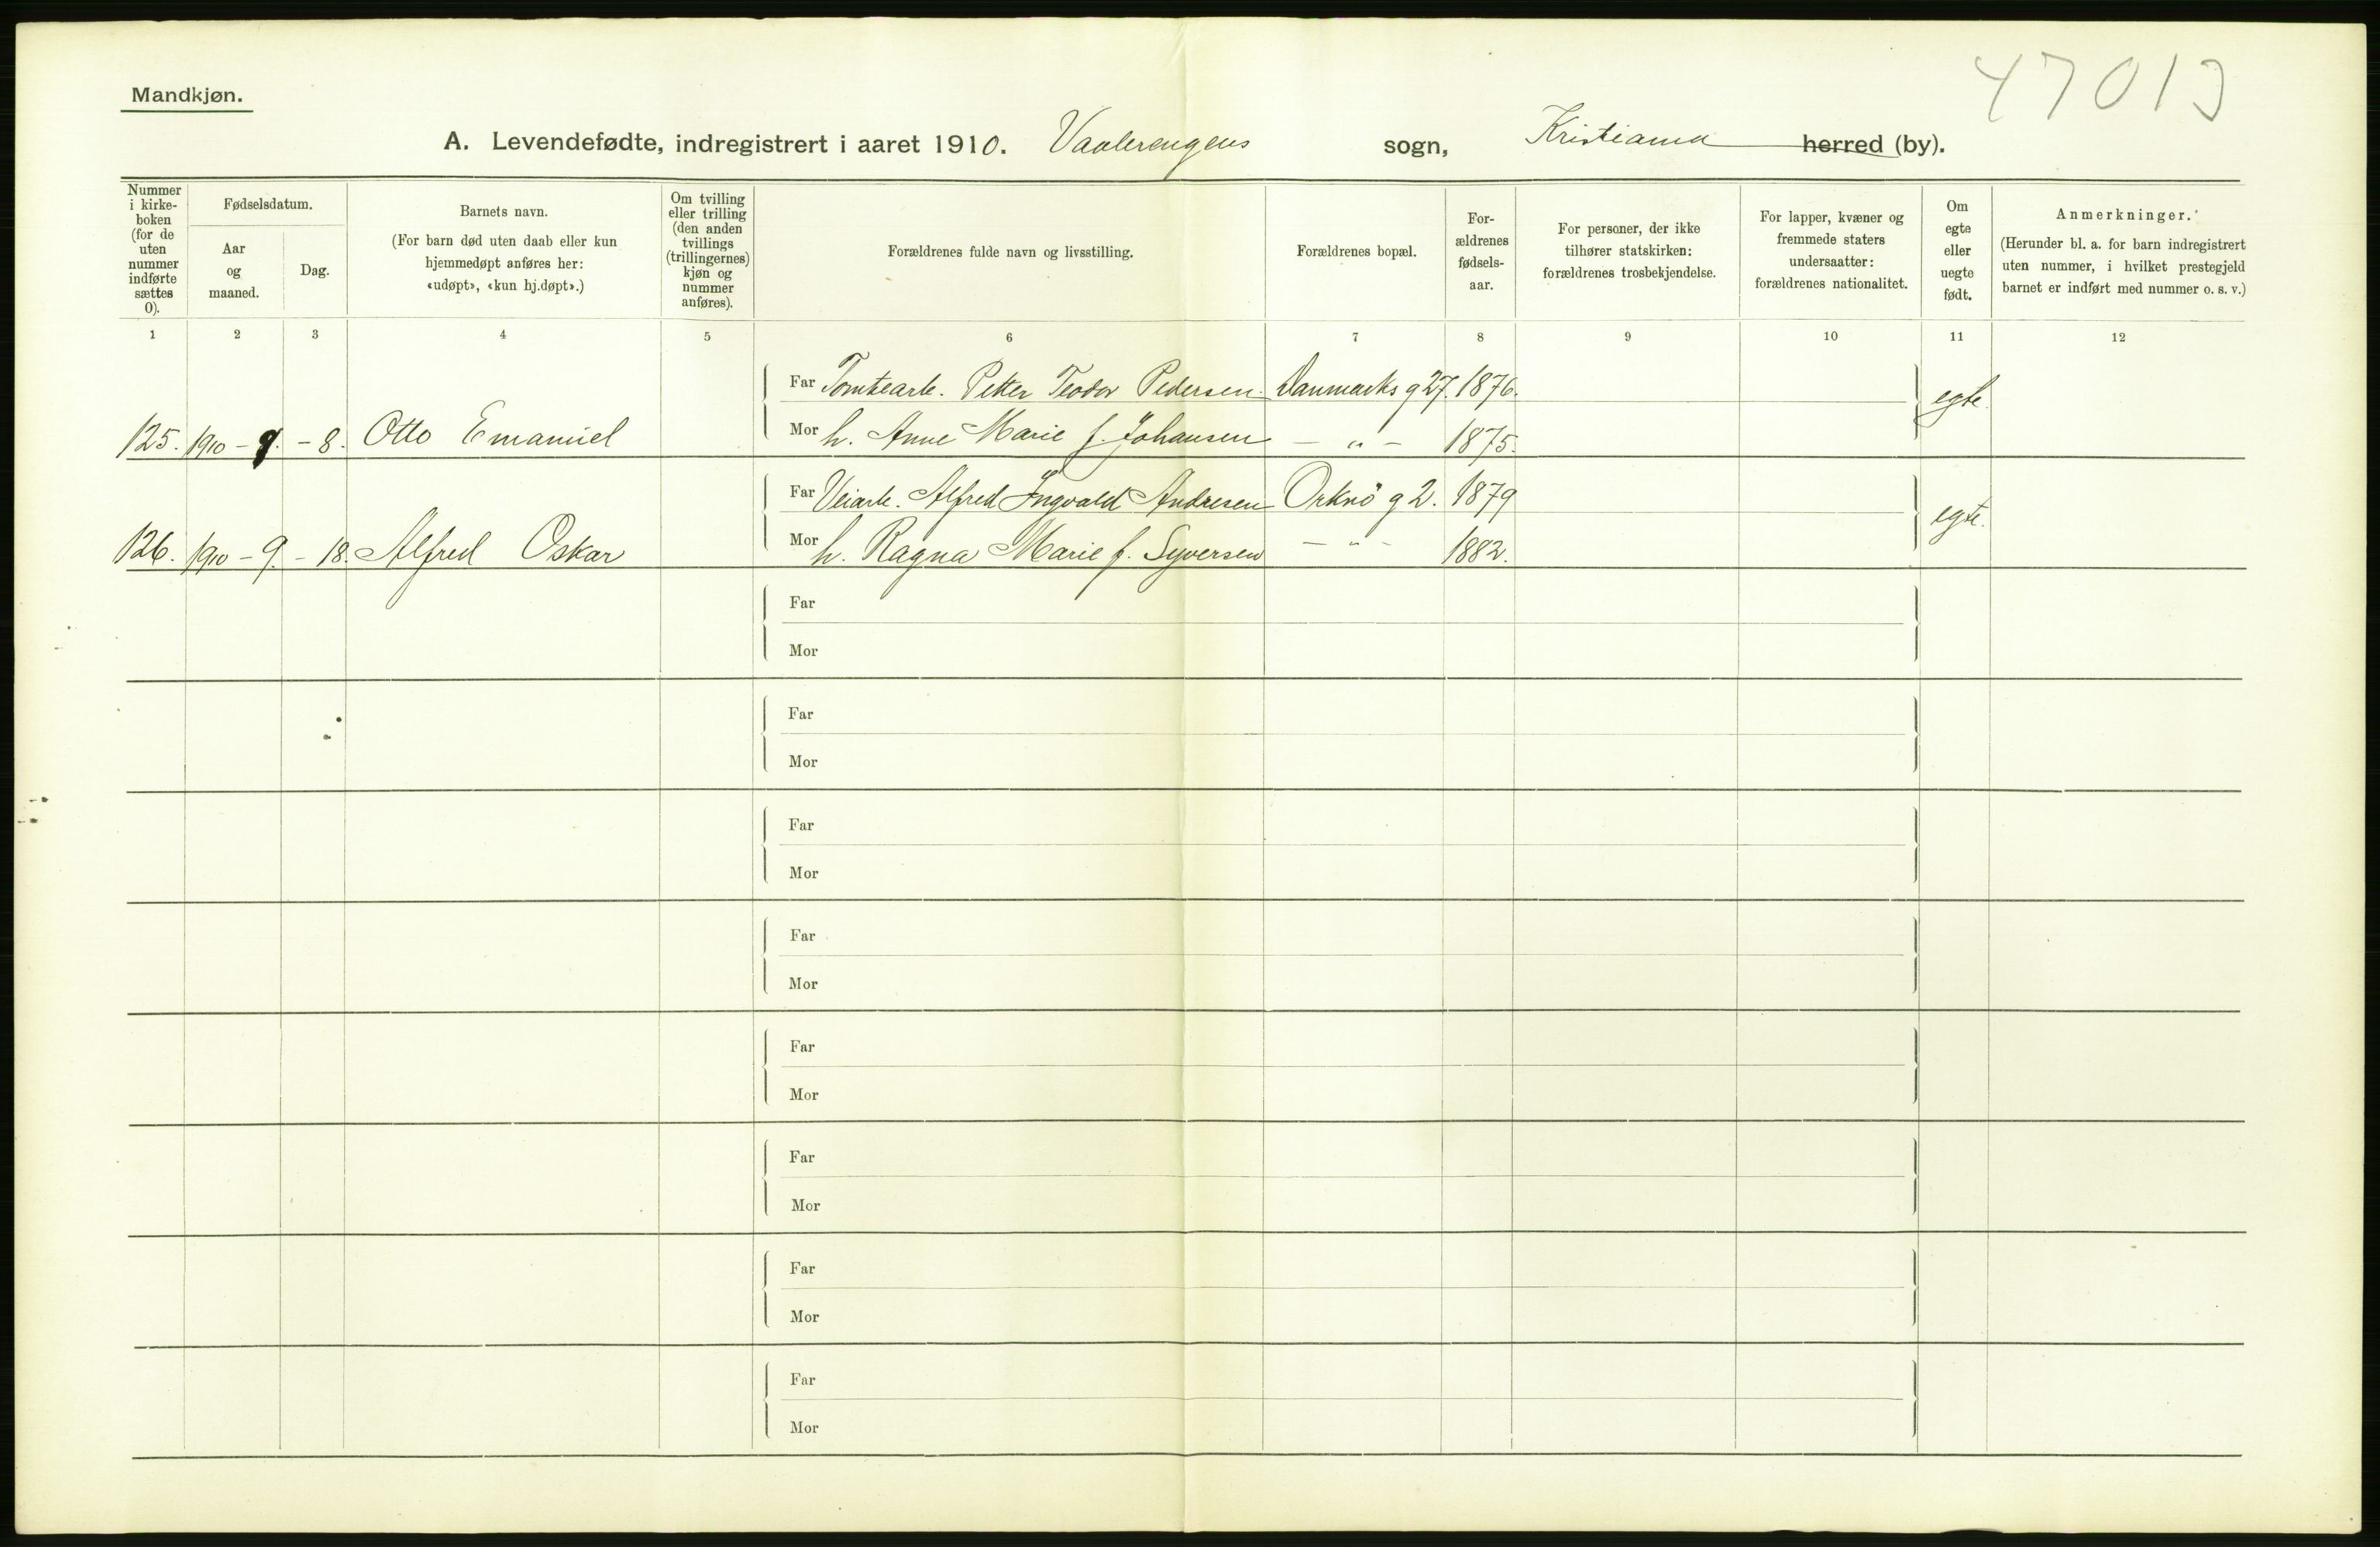 47013
Mandkjøn.
A. Levendefødte, indregistrert i aaret 1910. Vaalerengens sogn, Kristiania herred (by).
Nummer i kirke-boken (for de uten nummer indførte sættes 0).
Fødselsdatum.
Aar og maaned.
Dag.
Barnets navn.
(For barn død uten daab eller kun hjemmedøpt anføres her: «udøpt», «kun hj.døpt».)
Om tvilling eller trilling (den anden tvillings (trillingernes) kjøn og nummer anføres).
Forældrenes fulde navn og livsstilling.
Forældrenes bopæl.
For-ældrenes fødsels-aar.
For personer, der ikke tilhører statskirken: forældrenes trosbekjendelse.
For lapper, kvæner og fremmede staters undersaatter: forældrenes nationalitet.
Om egte eller uegte født.
Anmerkninger.
(Herunder bl. a. for barn indregistrert uten nummer, i hvilket prestegjeld barnet er indført med nummer o. s. v.)
1 2 3 4 5 6 7 8 9 10 11 12
Far Tomtearb. Petter Teodor Pedersen. Danmarks g 27. 1876. egte.
125. 1910 - 9. - 8. Otto Emanuel Mor h. Anne Marie f. Johansen - " - 1875.
Far Veiarb. Alfred Ingvald Andresen Orknö g 2. 1879 egte.
126. 1910 - 9. - 18. Alfred Oskar Mor h. Ragna Marie f. Syversen - " - 1882.
Far
Mor
Far
Mor
Far
Mor
Far
Mor
Far
Mor
Far
Mor
Far
Mor
Far
Mor